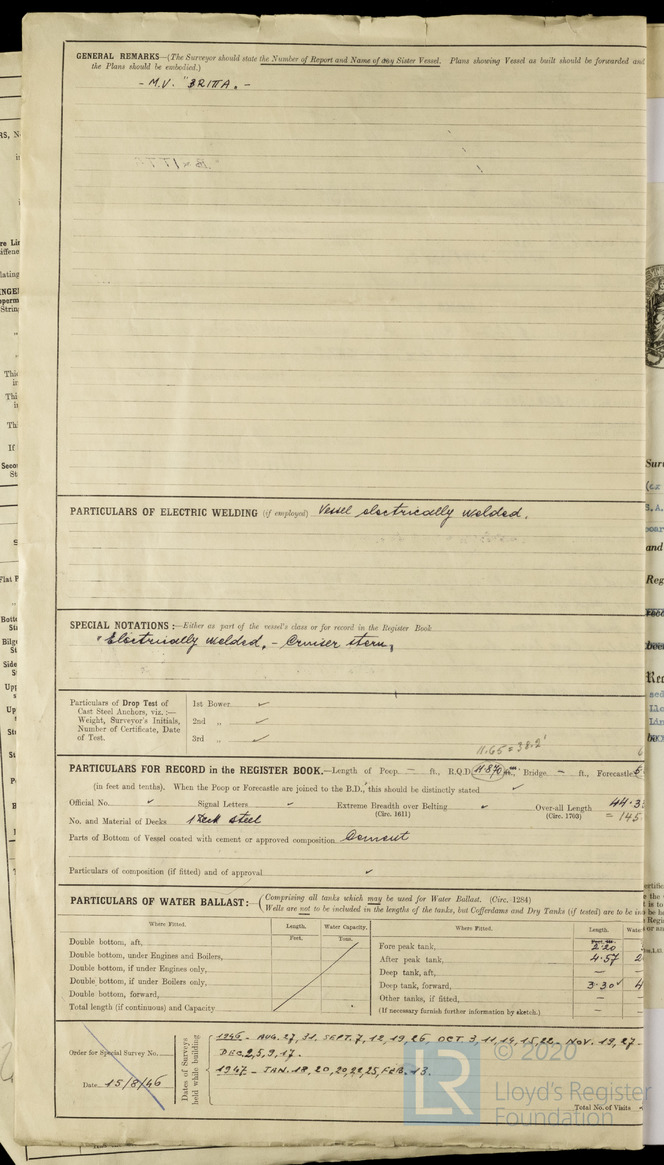 GENERAL REMARKS—(The Surveyor should state the Number of Report and Name of any Sister Vessel. Plans showing Vessel as built should be forwarded and
the Plans should be embodied.)
- M.V. "BRITTA. -
PARTICULARS OF ELECTRIC WELDING (if employed) Vessel electrically welded.
SPECIAL NOTATIONS :—Either as part of the vessel's class or for record in the Register Book.
"Electrically welded. - Cruiser stern,
Particulars of Drop Test of
Cast Steel Anchors, viz. :—
Weight, Surveyor's Initials,
Number of Certificate, Date
of Test.
1st Bower ✓
2nd „ ✓
3rd „ ✓
11.65 = 38.2'
PARTICULARS FOR RECORD in the REGISTER BOOK.—Length of Poop — ft., R.Q.D. 11.870 Bridge — ft., Forecastle
(in feet and tenths). When the Poop or Forecastle are joined to the B.D., this should be distinctly stated ✓
Official No. ✓ Signal Letters ✓ Extreme Breadth over Belting ✓ Over-all Length 44.3
(Circ. 1611) (Circ. 1703) = 145
No. and Material of Decks 1 Deck steel
Parts of Bottom of Vessel coated with cement or approved composition Cement
Particulars of composition (if fitted) and of approval ✓
PARTICULARS OF WATER BALLAST:— (Comprising all tanks which may be used for Water Ballast. (Circ. 1284)
Wells are not to be included in the lengths of the tanks, but Cofferdams and Dry Tanks (if tested) are to be
Where Fitted. Length. Water Capacity. Where Fitted. Length.
Feet. Tons.
Double bottom, aft,
Double bottom, under Engines and Boilers,
Double bottom, if under Engines only,
Double bottom, if under Boilers only,
Double bottom, forward,
Total length (if continuous) and Capacity
Fore peak tank, 2.20
After peak tank, 4.57 2
Deep tank, aft, — —
Deep tank, forward, 3.30 ✓ 4
Other tanks, if fitted, — —
(If necessary furnish further information by sketch.) — —
Order for Special Survey No.
Date 15/8/46
Dates of Surveys
held while building
1946 - AUG. 27, 31, SEPT. 7, 12, 19, 26, OCT. 3, 11, 14, 15, 22 - NOV. 19, 27 -
DEC. 2, 5, 9, 17.
1947 - JAN. 18, 20, 20, 22, 25, FEB. 13.
Total No. of Visits
© 2020
LR
Lloyd's Register
Foundation